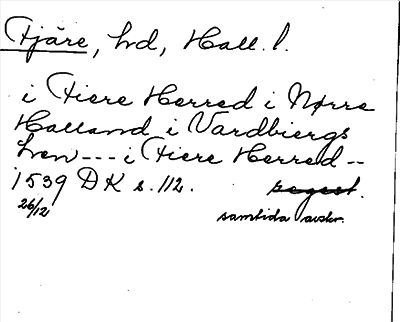 Fjäre, hd, Hall. l.
i Fiere Herred i Nørre
Halland i Vardbiergs
Len --- i Fiere Herred --
1539 DK s. 112. regest.
26/12 samtida avskr.